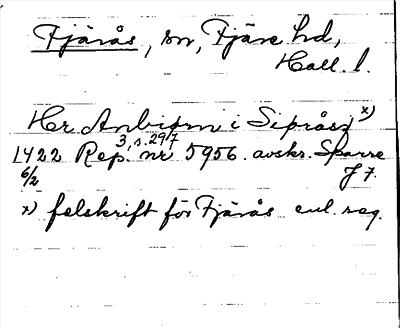 Fjärås, sn, Fjäre hd,
Hall. l.
Hr Anbiørn i Sipråsz x)
3, s. 297
1422 Rep. nr 5956. avskr. Sparre
6/2 J 7.
x) felskrift för Fjärås enl. reg.